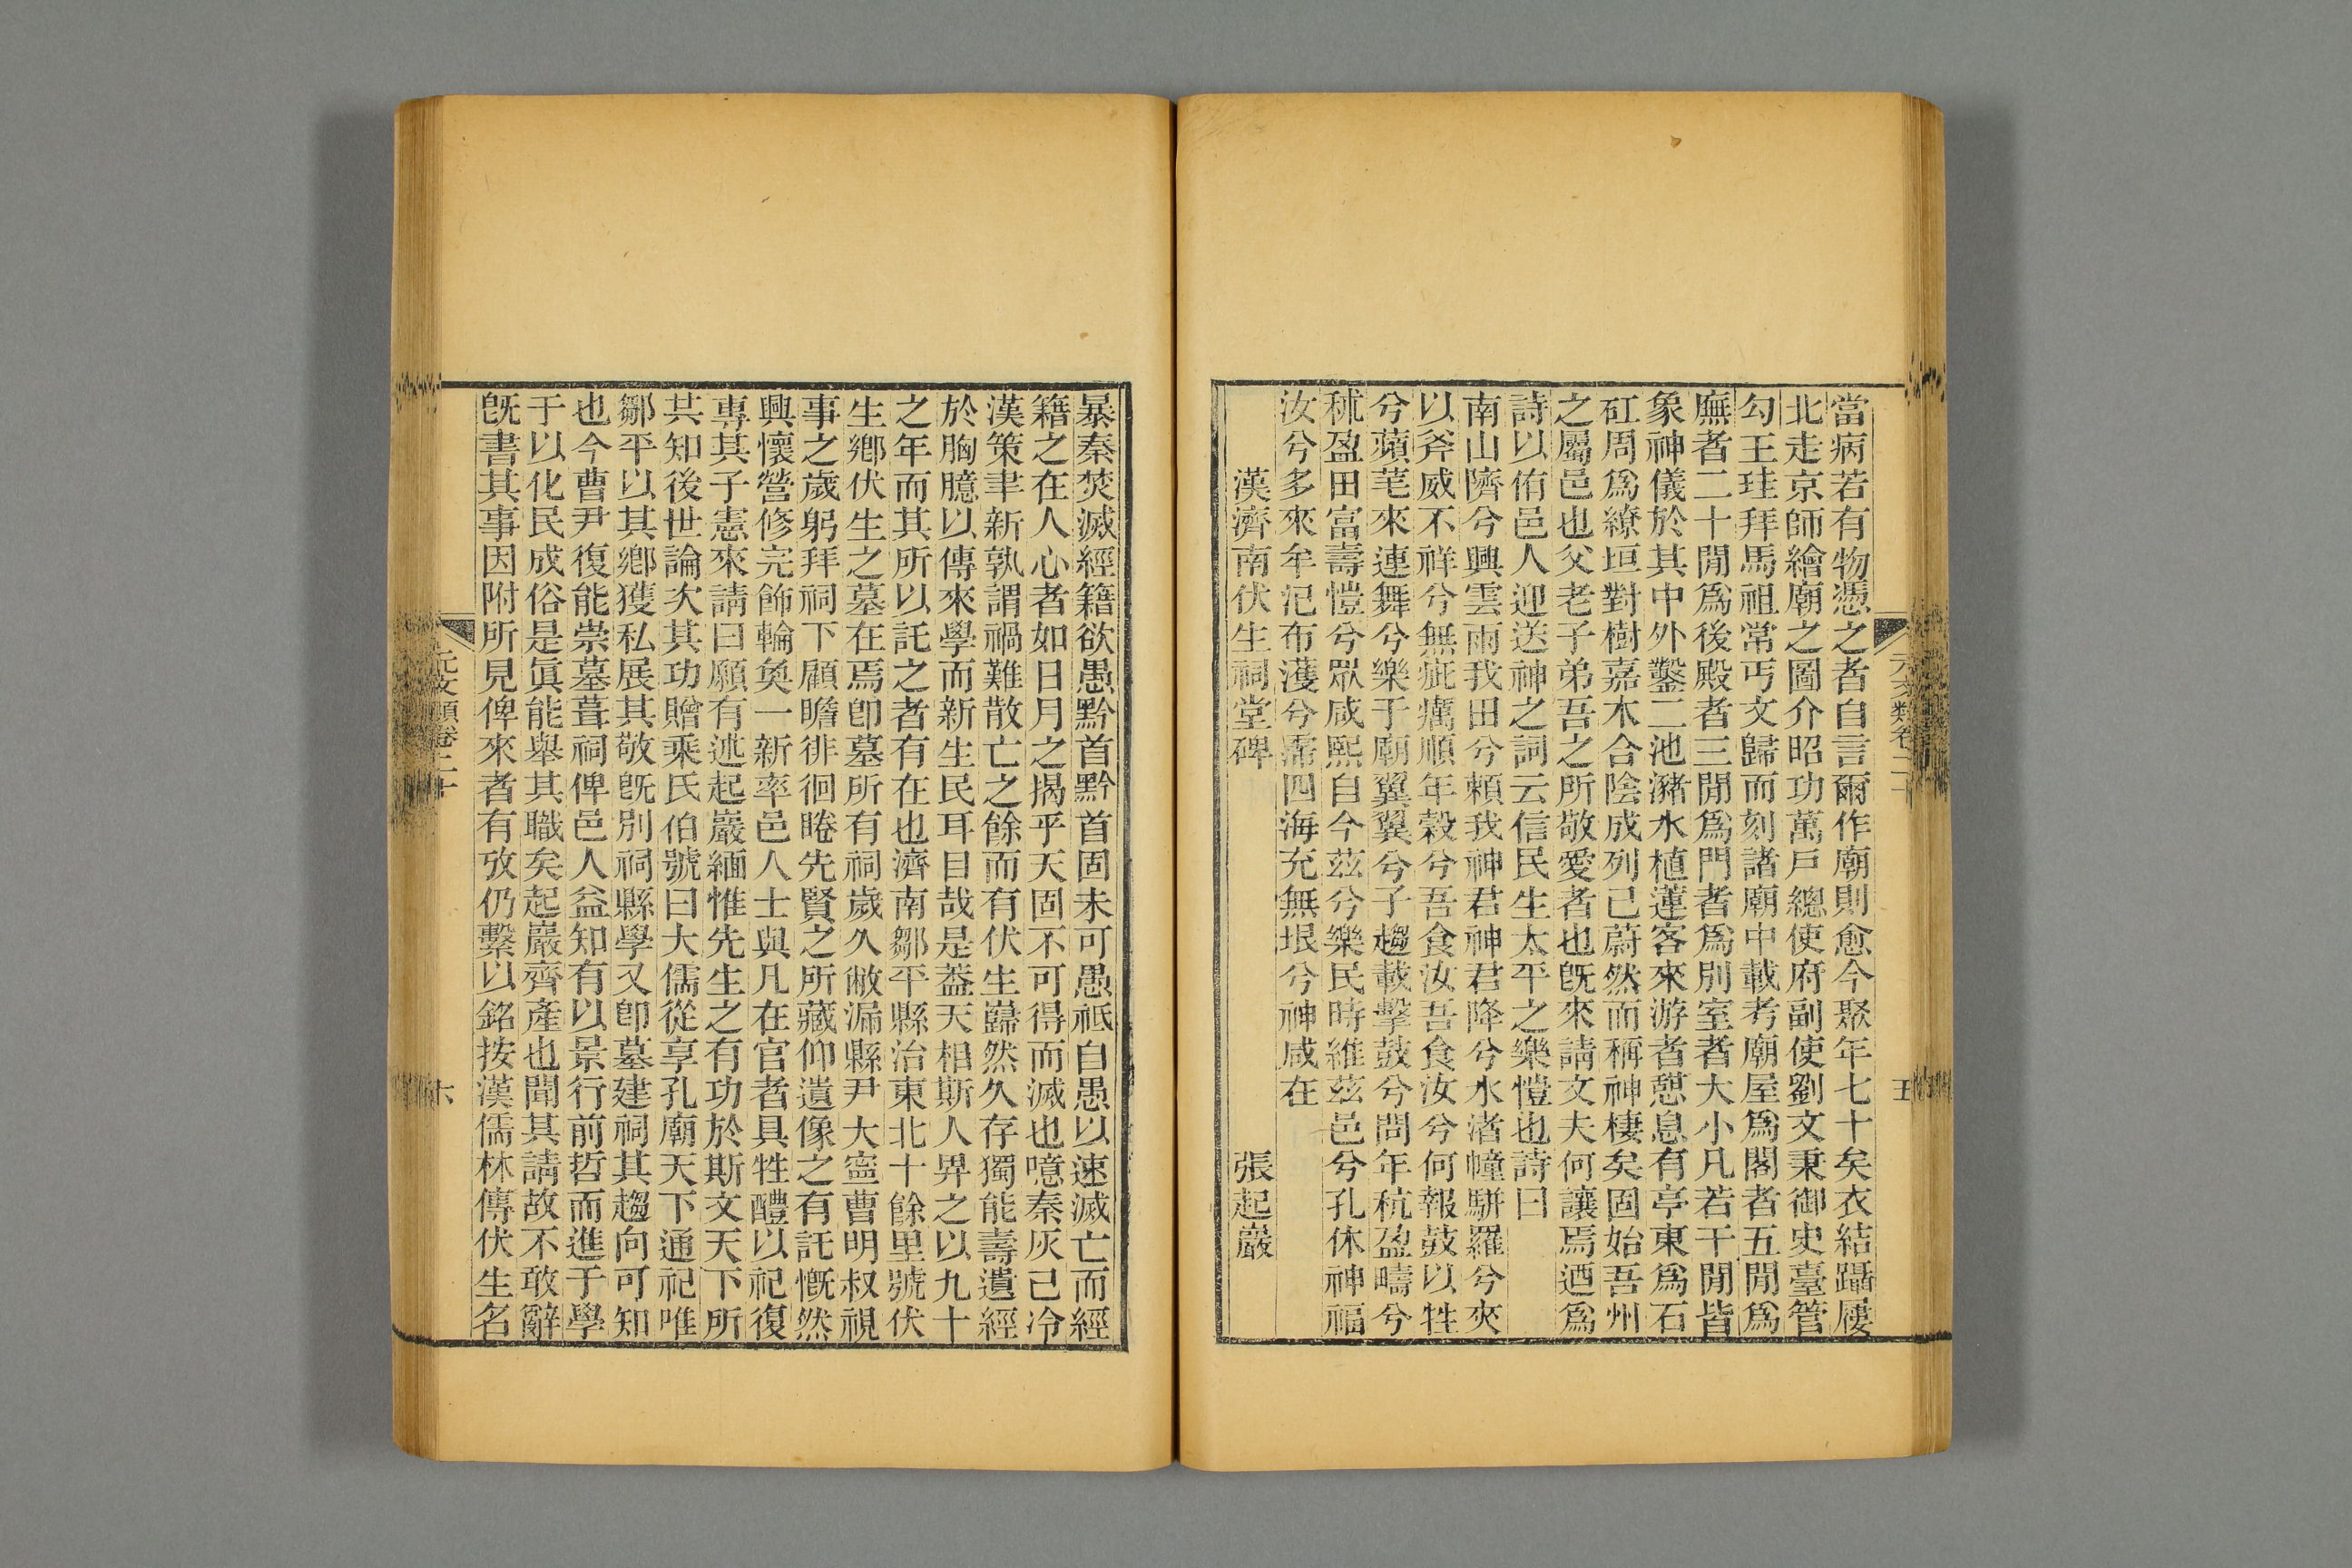 當病若有物憑之者自言爾作廟則愈今聚年七十矣衣結躡屨
北走京師繪廟之圖介昭功萬戶總使府副使劉文秉御史臺管
勾王珪拜馬祖常丐文歸而刻諸廟中載考廟屋爲閣者五閒爲
廡者二十閒爲後殿者三閒爲門者爲別室者大小凡若干閒皆
象神儀於其中外鑿二池瀦水植蓮客來游者憩息有亭東爲石
矼周爲繚垣對樹嘉木合陰成列己蔚然而稱神棲矣固始吾州
之屬邑也父老子弟吾之所敬愛者也旣來請文夫何讓焉迺爲
詩以侑邑人迎送神之詞云信民生太平之樂愷也詩曰
南山隮兮興雲雨我田兮賴我神君神君降兮水渚幢駢羅兮夾
以斧威不祥兮無疵癘順年穀兮吾食汝吾食汝兮何報鼓以牲
兮蘋芼來連舞兮樂于廟翼翼兮子趨載擊鼓兮問年秔盈疇兮
秫盈田富壽愷兮眾咸熙自今茲兮樂民時維茲邑兮孔休神福
汝兮多來牟汜布濩兮霈四海充無垠兮神咸在
漢濟南伏生祠堂碑　張起巖
元文類卷二十
五
暴秦焚滅經籍欲愚黔首黔首固未可愚祇自愚以速滅亡而經
籍之在人心者如日月之揭乎天固不可得而滅也噫秦灰己冷
漢策聿新孰謂禍難散亡之餘而有伏生巋然久存獨能壽遺經
於胸臆以傳來學而新生民耳目哉是葢天相斯人畀之以九十
之年而其所以託之者有在也濟南鄒平縣治東北十餘里號伏
生鄉伏生之墓在焉卽墓所有祠歲久敝漏縣尹大寍曹明叔視
事之歲躬拜祠下顧瞻徘徊睠先賢之所藏仰遺像之有託慨然
興懷營修完飾輪奐一新率邑人士與凡在官者具牲醴以祀復
專其子憲來請曰願有述起巖緬惟先生之有功於斯文天下所
共知後世論次其功贈乘氏伯號曰大儒從享孔廟天下通祀唯
鄒平以其鄉獲私展其敬旣別祠縣學又卽墓建祠其趨向可知
也今曹尹復能崇墓葺祠俾邑人益知有以景行前哲而進于學
于以化民成俗是眞能舉其職矣起巖齊產也聞其請故不敢辭
旣書其事因附所見俾來者有攷仍繫以銘按漢儒林傳伏生名
元文類卷二十
六